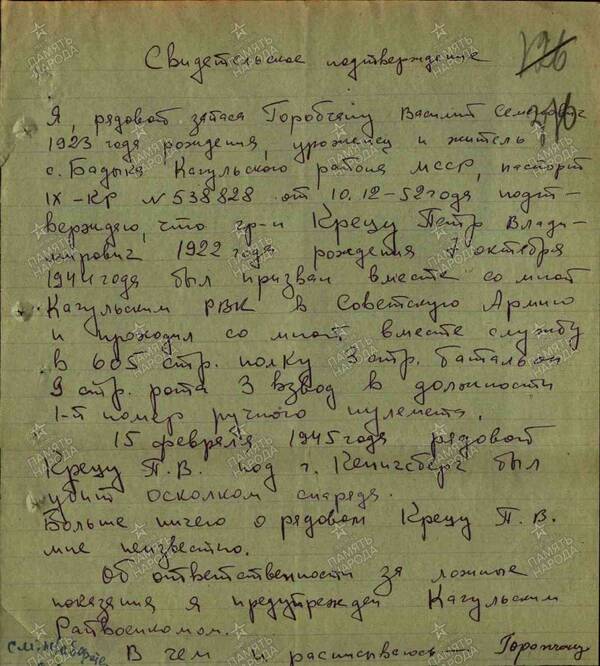 Свидетельское подтверждение
126
276
Я, рядовой запаса Горобчану Василий Семенович
1923 года рождения, уроженец и житель
с. Бадыка Кагульского района МССР, паспорт
IX-КР № 538828 от 10.12-52 года подт-
верждаю, что гр-н Крецу Петр Влади-
мирович 1922 года рождения 7 октября
1944 года был призван вместе со мной
Кагульским РВК в Советскую Армию
и проходил со мной вместе службу
в 605 стр. полку 3 стр. батальон
9 стр. рота 3 взвод в должности
1-й номер ручного пулемета.
15 февраля 1945 года рядовой
Крецу П.В. под г. Кенигсберг был
убит осколком снаряда.
Больше ничего о рядовом Крецу П.В.
мне неизвестно.
Об ответственности за ложные
показания я предупрежден Кагульским
Райвоенкомом.
В чем и расписываюсь —
см. на обороте
ПАМЯТЬ НАРОДА